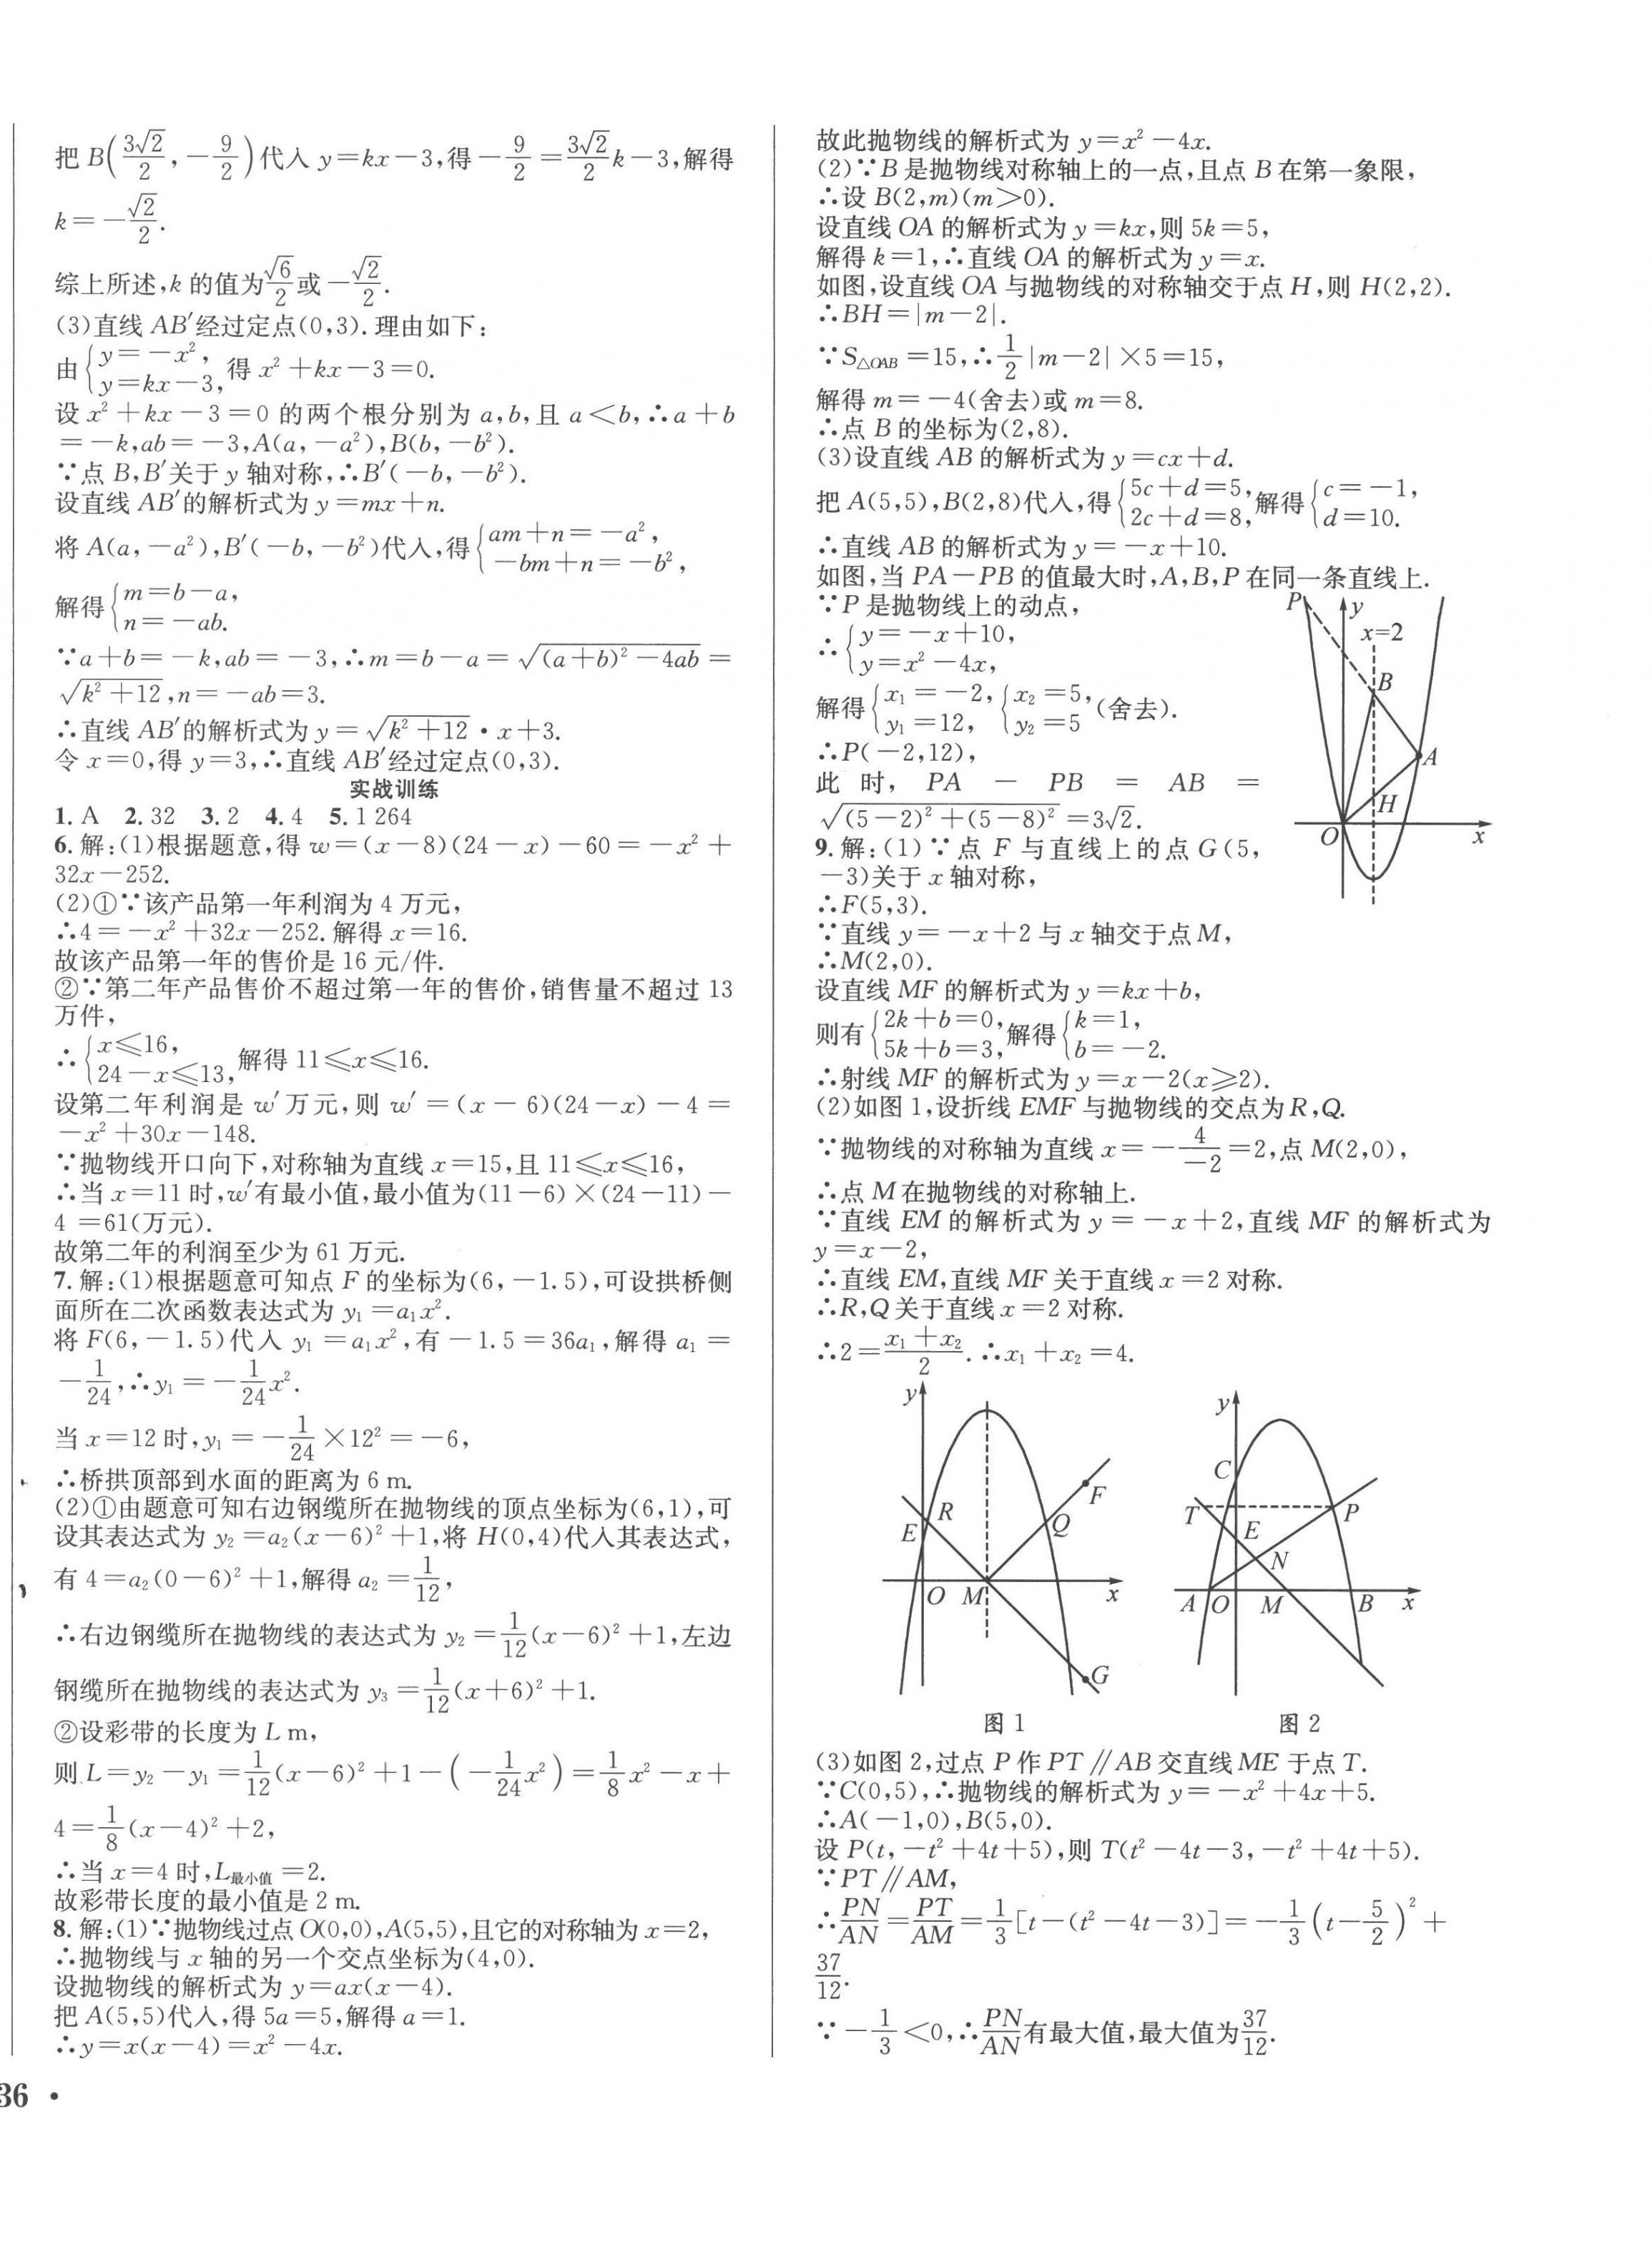 把 B(3√2/2, -9/2)代入 y=kx-3,得-9/2=3√2/2 k-3,解得
k=-√2/2.
综上所述,k 的值为√6/2或-√2/2.
(3)直线 AB′经过定点(0,3).理由如下:
由{y=-x², y=kx-3, 得 x²+kx-3=0.
设 x²+kx-3=0 的两个根分别为 a,b,且 a<b,∴a+b
=-k,ab=-3,A(a,-a²),B(b,-b²).
∵点 B,B′关于 y 轴对称,∴B′(-b,-b²).
设直线 AB′的解析式为 y=mx+n.
将 A(a,-a²),B′(-b,-b²)代入,得{am+n=-a², -bm+n=-b²,
解得{m=b-a, n=-ab.
∵a+b=-k,ab=-3,∴m=b-a=√((a+b)²-4ab)=
√(k²+12),n=-ab=3.
∴直线 AB′的解析式为 y=√(k²+12)·x+3.
令 x=0,得 y=3,∴直线 AB′经过定点(0,3).
实战训练
1. A 2. 32 3. 2 4. 4 5. 1 264
6. 解:(1)根据题意,得 w=(x-8)(24-x)-60=-x²+
32x-252.
(2)①∵该产品第一年利润为 4 万元,
∴4=-x²+32x-252.解得 x=16.
故该产品第一年的售价是 16 元/件.
②∵第二年产品售价不超过第一年的售价,销售量不超过 13
万件,
∴{x≤16, 24-x≤13, 解得 11≤x≤16.
设第二年利润是 w′万元,则 w′=(x-6)(24-x)-4=
-x²+30x-148.
∵抛物线开口向下,对称轴为直线 x=15,且 11≤x≤16,
∴当 x=11 时,w′有最小值,最小值为(11-6)×(24-11)-
4=61(万元).
故第二年的利润至少为 61 万元.
7. 解:(1)根据题意可知点 F 的坐标为(6,-1.5),可设拱桥侧
面所在二次函数表达式为 y₁=a₁x².
将 F(6,-1.5)代入 y₁=a₁x²,有-1.5=36a₁,解得 a₁=
-1/24,∴y₁=-1/24 x².
当 x=12 时,y₁=-1/24×12²=-6,
∴桥拱顶部到水面的距离为 6 m.
(2)①由题意可知右边钢缆所在抛物线的顶点坐标为(6,1),可
设其表达式为 y₂=a₂(x-6)²+1,将 H(0,4)代入其表达式,
有 4=a₂(0-6)²+1,解得 a₂=1/12,
∴右边钢缆所在抛物线的表达式为 y₂=1/12(x-6)²+1,左边
钢缆所在抛物线的表达式为 y₃=1/12(x+6)²+1.
②设彩带的长度为 L m,
则 L=y₂-y₁=1/12(x-6)²+1-(-1/24 x²)=1/8 x²-x+
4=1/8(x-4)²+2,
∴当 x=4 时,L最小值=2.
故彩带长度的最小值是 2 m.
8. 解:(1)∵抛物线过点 O(0,0),A(5,5),且它的对称轴为 x=2,
∴抛物线与 x 轴的另一个交点坐标为(4,0).
设抛物线的解析式为 y=ax(x-4).
把 A(5,5)代入,得 5a=5,解得 a=1.
∴y=x(x-4)=x²-4x.
36 ·
故此抛物线的解析式为 y=x²-4x.
(2)∵B 是抛物线对称轴上的一点,且点 B 在第一象限,
∴设 B(2,m)(m>0).
设直线 OA 的解析式为 y=kx,则 5k=5,
解得 k=1,∴直线 OA 的解析式为 y=x.
如图,设直线 OA 与抛物线的对称轴交于点 H,则 H(2,2).
∴BH=|m-2|.
∵S△OAB=15,∴1/2|m-2|×5=15,
解得 m=-4(舍去)或 m=8.
∴点 B 的坐标为(2,8).
(3)设直线 AB 的解析式为 y=cx+d.
把 A(5,5),B(2,8)代入,得{5c+d=5, 2c+d=8, 解得{c=-1, d=10.
∴直线 AB 的解析式为 y=-x+10.
如图,当 PA-PB 的值最大时,A,B,P 在同一条直线上.
∵P 是抛物线上的动点,
∴{y=-x+10, y=x²-4x,
解得{x₁=-2, y₁=12, {x₂=5, y₂=5 (舍去).
∴P(-2,12),
此时, PA - PB = AB =
√((5-2)²+(5-8)²)=3√2.
P
y
x=2
B
A
H
O
x
9. 解:(1)∵点 F 与直线上的点 G(5,
-3)关于 x 轴对称,
∴F(5,3).
∵直线 y=-x+2 与 x 轴交于点 M,
∴M(2,0).
设直线 MF 的解析式为 y=kx+b,
则有{2k+b=0, 5k+b=3, 解得{k=1, b=-2.
∴射线 MF 的解析式为 y=x-2(x≥2).
(2)如图 1,设折线 EMF 与抛物线的交点为 R,Q.
∵抛物线的对称轴为直线 x=-4/-2=2,点 M(2,0),
∴点 M 在抛物线的对称轴上.
∵直线 EM 的解析式为 y=-x+2,直线 MF 的解析式为
y=x-2,
∴直线 EM,直线 MF 关于直线 x=2 对称.
∴R,Q 关于直线 x=2 对称.
∴2=(x₁+x₂)/2.∴x₁+x₂=4.
y
R
E
F
Q
O
M
x
G
图 1
y
C
T
E
P
N
A
O
M
B
x
图 2
(3)如图 2,过点 P 作 PT∥AB 交直线 ME 于点 T.
∵C(0,5),∴抛物线的解析式为 y=-x²+4x+5.
∴A(-1,0),B(5,0).
设 P(t,-t²+4t+5),则 T(t²-4t-3,-t²+4t+5).
∵PT∥AM,
∴PN/AN=PT/AM=1/3[t-(t²-4t-3)]=-1/3(t-5/2)²+
37/12.
∵-1/3<0,∴PN/AN有最大值,最大值为37/12.